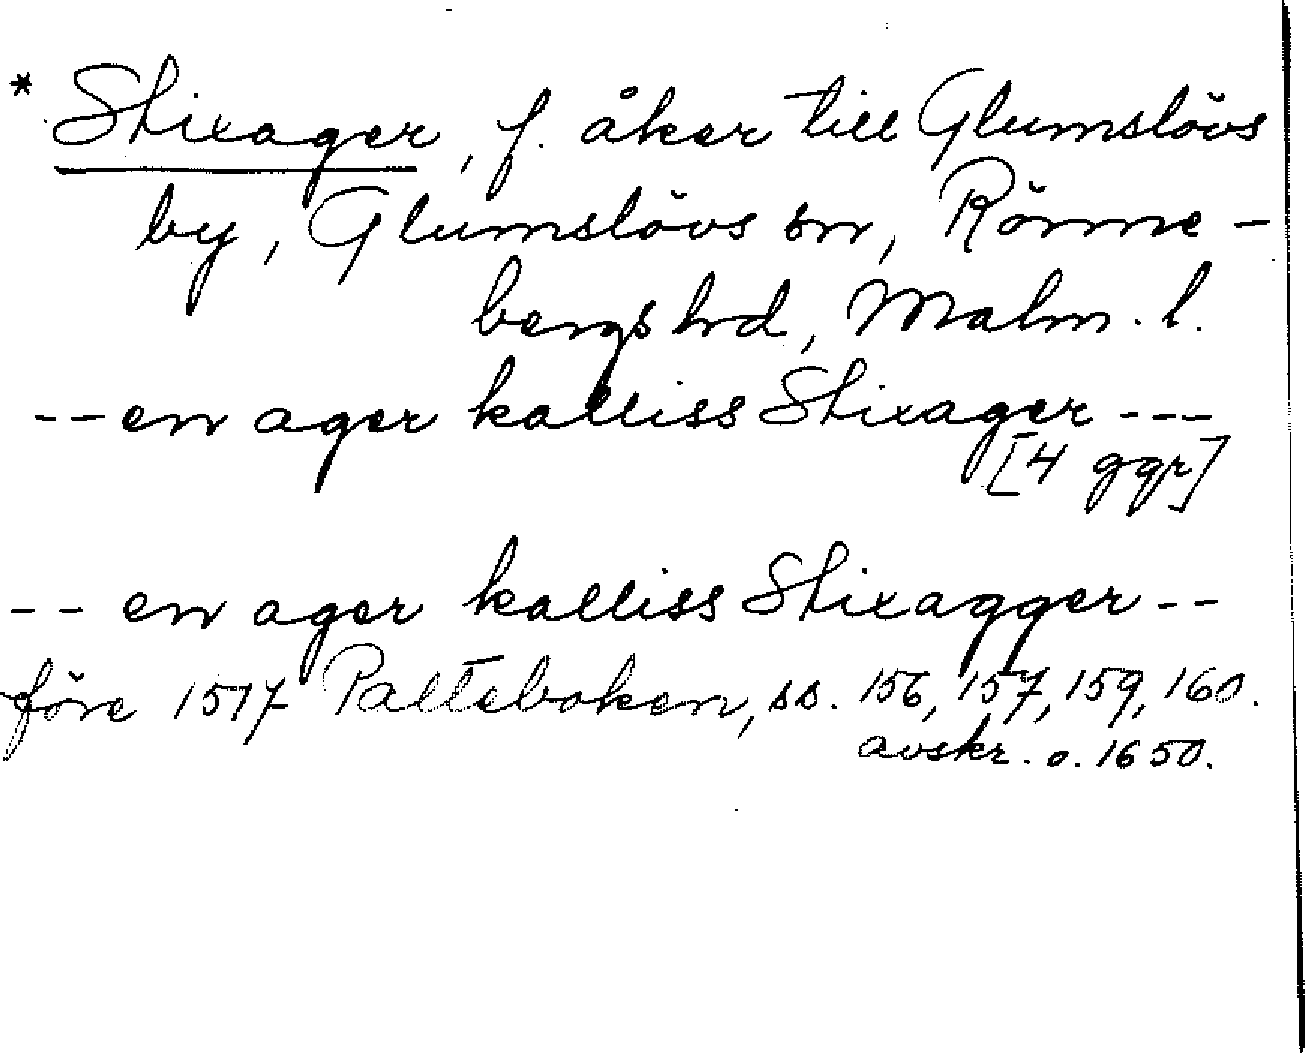 * Stixager, f. åker till Glumslövs
by, Glumslövs sn, Rönne-
bergs hrd, Malm. l.
-- en ager kalliss Stixager ---
[4 ggr]
-- en ager kalliss Stixagger --
före 1517 Palteboken, ss. 156, 157, 159, 160.
avskr. o. 1650.